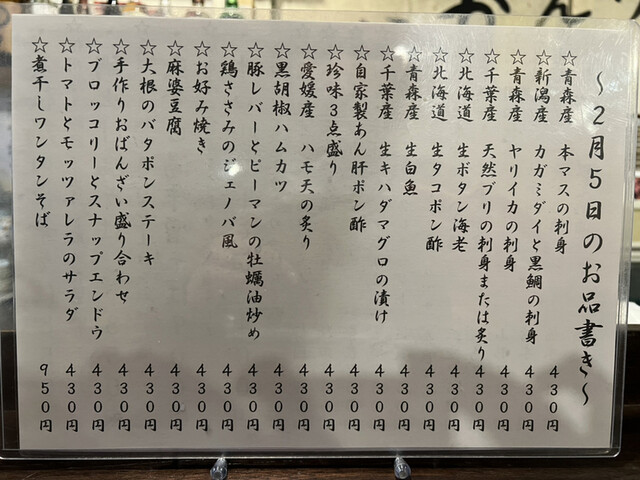 ～２月５日のお品書き～
☆青森産　本マスの刺身　４３０円
☆新潟産　カガミダイと黒鯛の刺身　４３０円
☆青森産　ヤリイカの刺身　４３０円
☆千葉産　天然ブリの刺身または炙り　４３０円
☆北海道　生ボタン海老　４３０円
☆北海道　生タコポン酢　４３０円
☆青森産　生白魚　４３０円
☆千葉産　生キハダマグロの漬け　４３０円
☆自家製あん肝ポン酢　４３０円
☆珍味３点盛り　４３０円
☆愛媛産　ハモ天の炙り　４３０円
☆黒胡椒ハムカツ　４３０円
☆豚レバーとピーマンの牡蠣油炒め　４３０円
☆鶏ささみのジェノバ風　４３０円
☆お好み焼き　４３０円
☆麻婆豆腐　４３０円
☆大根のバタポンステーキ　４３０円
☆手作りおばんざい盛り合わせ　４３０円
☆ブロッコリーとスナップエンドウ　４３０円
☆トマトとモッツァレラのサラダ　４３０円
☆煮干しワンタンそば　９５０円